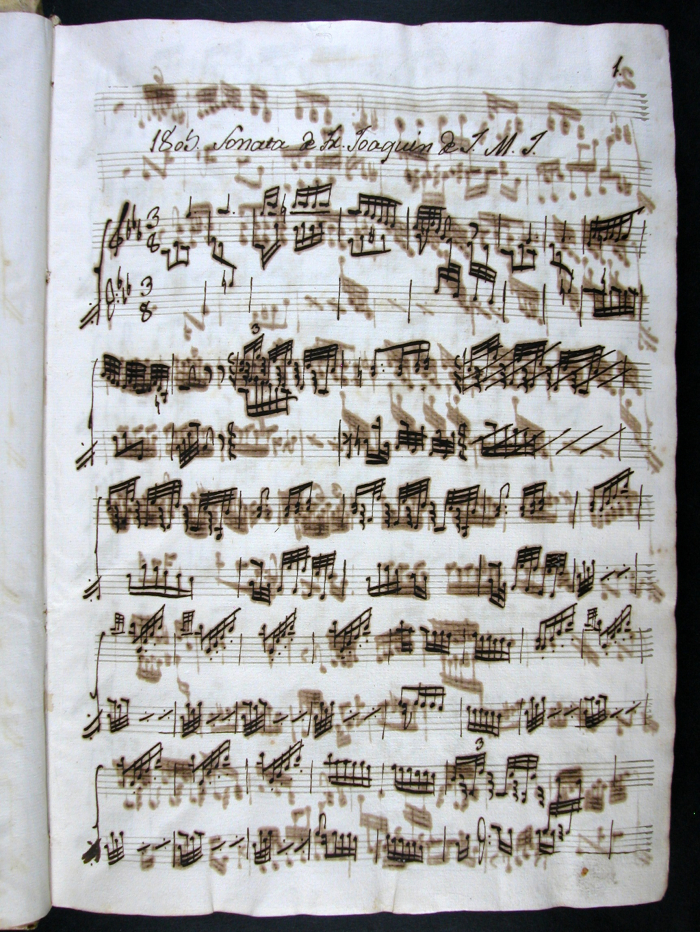 1.
1805. Sonata de Fr. Joaquin de J. M. J.
3
8
3
8
3
3